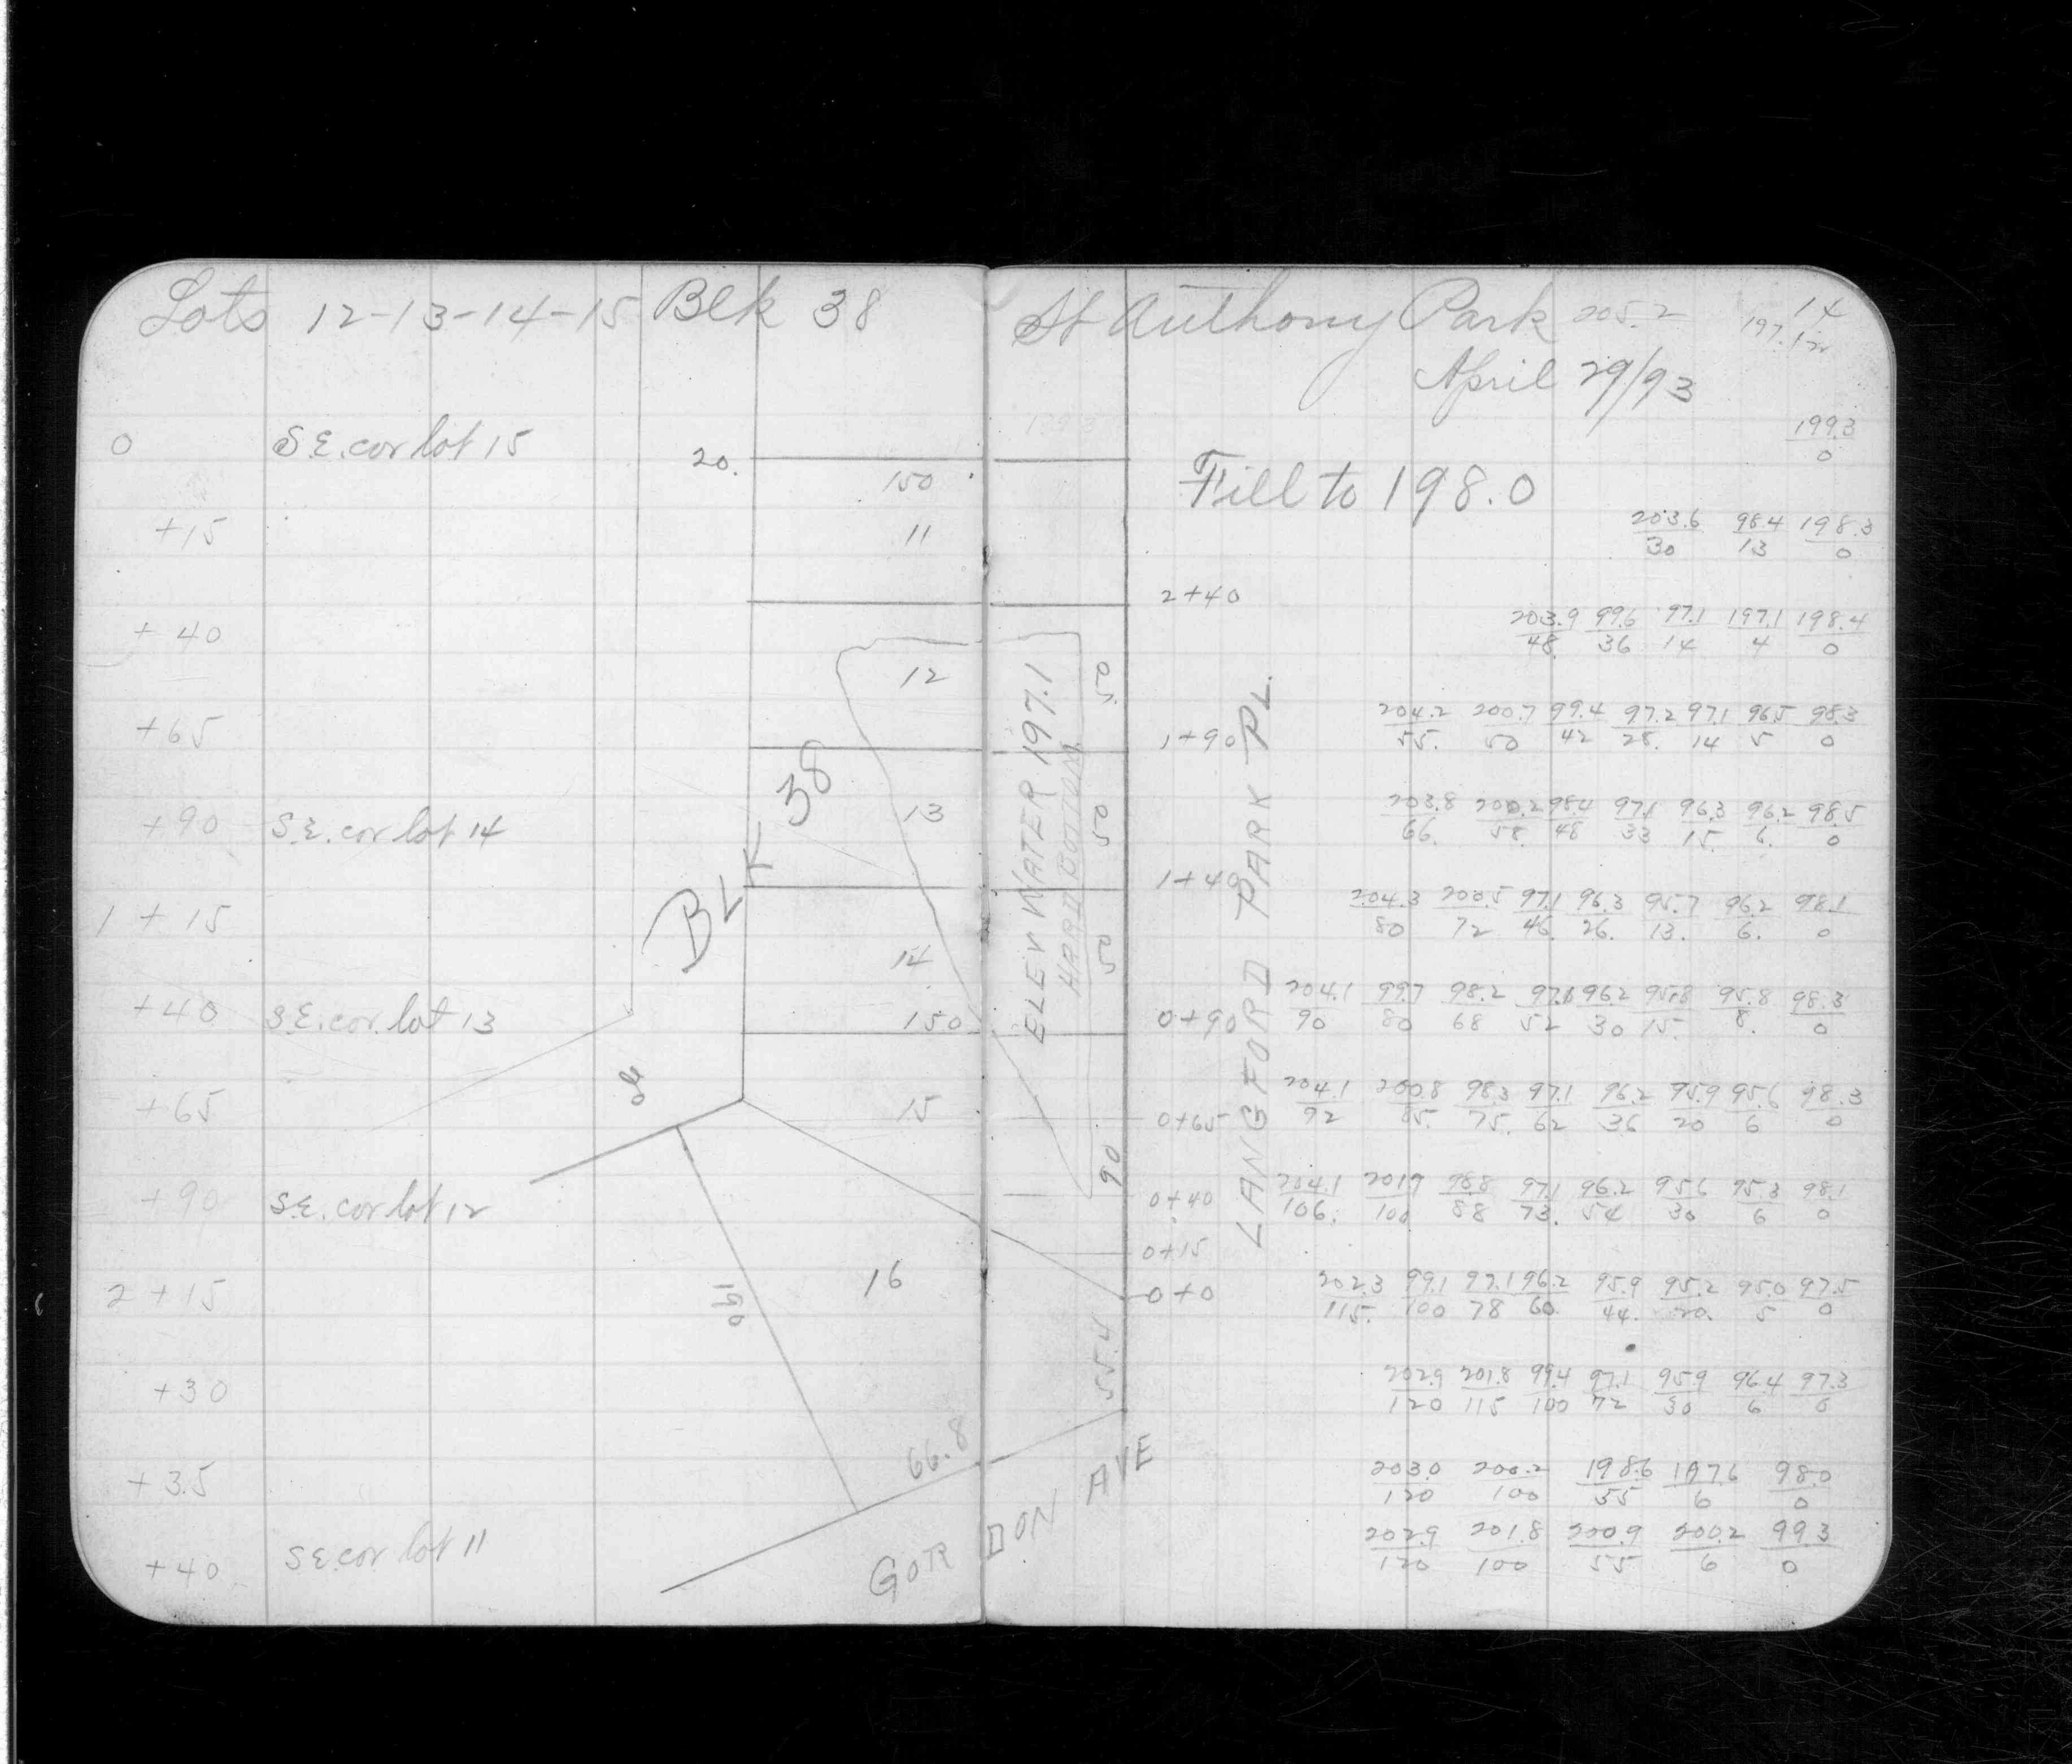 Lots 12-13-14-15 Blk 38
0 S.E. cor lot 15
+15
+40
+65
+90 S.E. cor lot 14
1+15
+40 S.E. cor. lot 13
+65
+90 S.E. cor lot 12
2+15
+30
+35
+40 S.E. cor lot 11
20.
150
11
12
13
14
150
15
16
BLK 38
190
66.8
GORDON AVE
St Anthony Park 205.2 14
197.12
April 29/93
Fill to 198.0
ELEV WATER 197.1
HARD BOTTOM
50
50
50
90
55.4
LANGFORD PARK PL.
2+40
1+90
1+40
0+90
0+65
0+40
0+15
0+0
199.3
0
203.6 98.4 198.3
30 13 0
203.9 99.6 97.1 197.1 198.4
48. 36 14 4 0
204.2 200.7 99.4 97.2 97.1 96.5 98.3
55. 50 42 28. 14 5 0
203.8 200.2 98.4 97.1 96.3 96.2 98.5
66. 58. 48 33 15. 6. 0
204.3 200.5 97.1 96.3 95.7 96.2 98.1
80 72 46. 26. 13. 6. 0
204.1 99.7 98.2 97.1 96.2 95.8 95.8 98.3
90 80 68 52 30 15. 8. 0
204.1 200.8 98.3 97.1 96.2 95.9 95.6 98.3
92 85. 75. 62 36 20 6 0
204.1 201.9 98.8 97.1 96.2 95.6 95.3 98.1
106. 100 88 73. 54 30 6 0
202.3 99.1 97.1 96.2 95.9 95.2 95.0 97.5
115. 100 78 60. 44. 20. 5 0
202.9 201.8 99.4 97.1 95.9 96.4 97.3
120 115 100 72 30 6 0
203.0 200.2 198.6 197.6 98.0
120 100 55 6 0
202.9 201.8 200.9 200.2 99.3
120 100 55 6 0